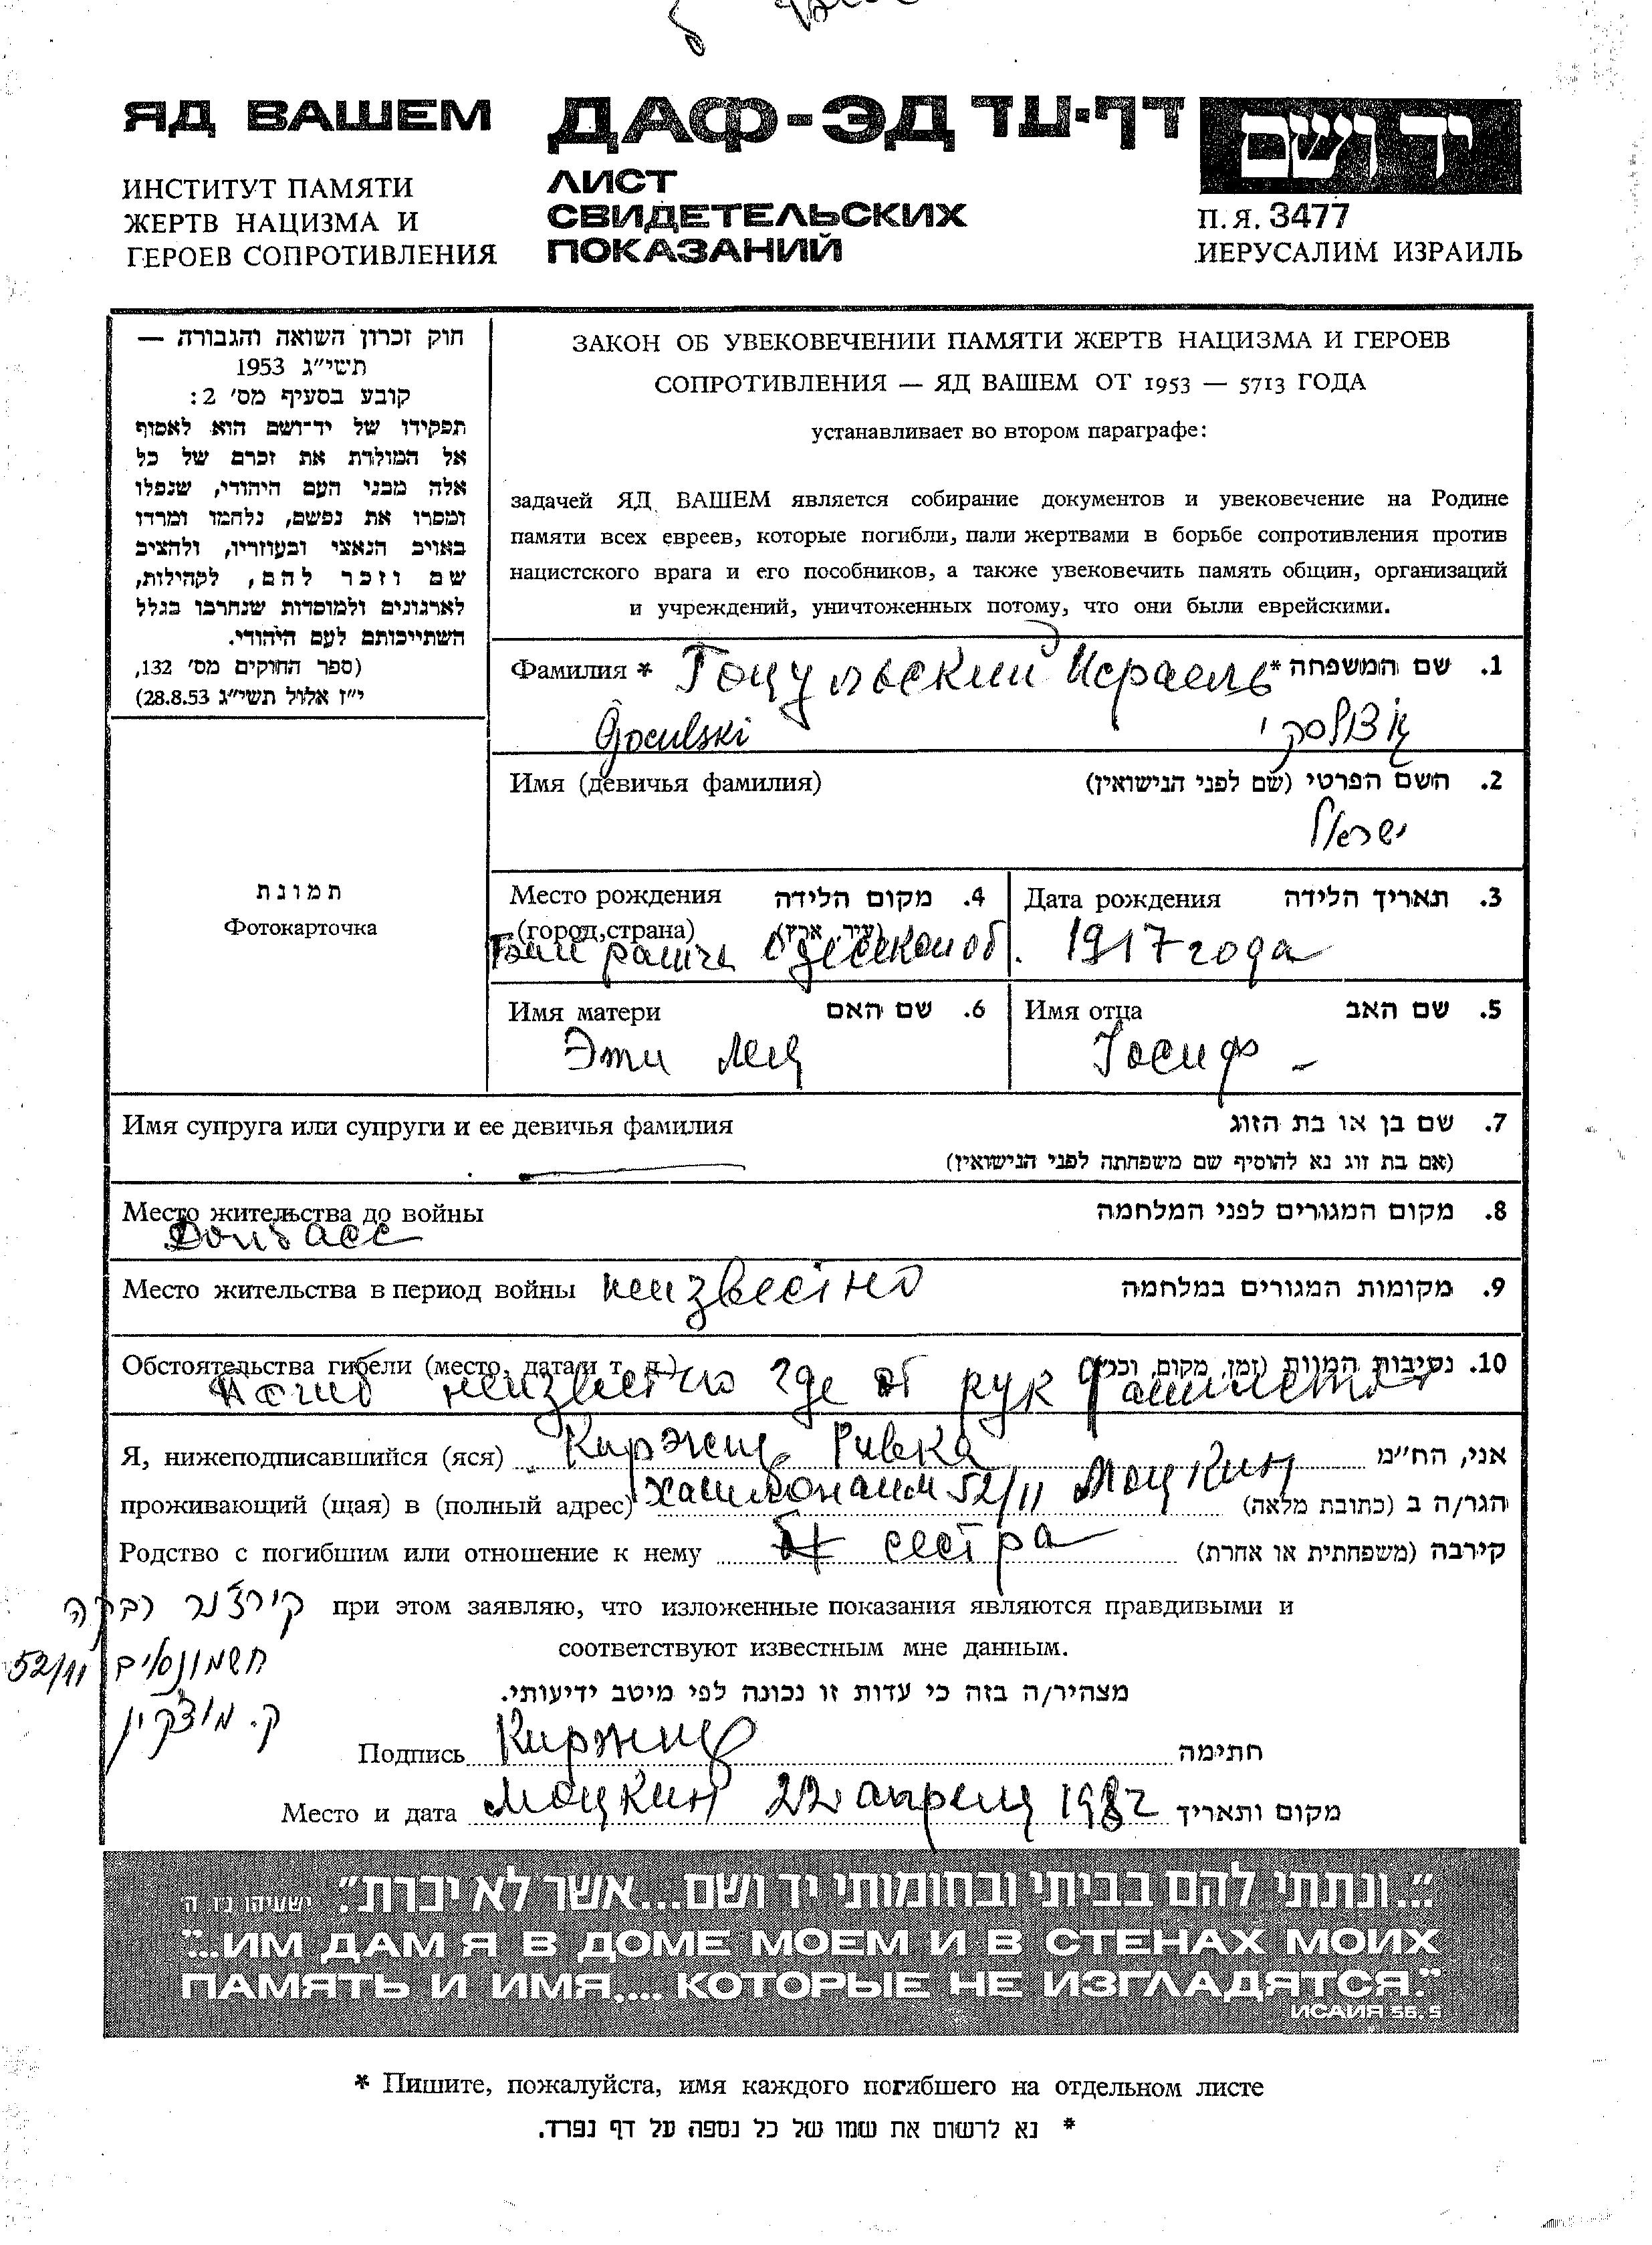 ЯД ВАШЕМ
ИНСТИТУТ ПАМЯТИ
ЖЕРТВ НАЦИЗМА И
ГЕРОЕВ СОПРОТИВЛЕНИЯ
ДАФ-ЭД דף-עד
ЛИСТ
СВИДЕТЕЛЬСКИХ
ПОКАЗАНИЙ
יד ושם
П.Я. 3477
ИЕРУСАЛИМ ИЗРАИЛЬ
חוק זכרון השואה והגבורה —
תשי״ג 1953
קובע בסעיף מס׳ 2:
תפקידו של יד-ושם הוא לאסוף
אל המולדת את זכרם של כל
אלה מבני העם היהודי, שנפלו
ומסרו את נפשם, נלחמו ומרדו
באויב הנאצי ובעוזריו, ולהציב
שם וזכר להם, לקהילות,
לארגונים ולמוסדות שנחרבו בגלל
השתייכותם לעם היהודי.
(ספר החוקים מס׳ 132,
י״ז אלול תשי״ג 28.8.53)
ЗАКОН ОБ УВЕКОВЕЧЕНИИ ПАМЯТИ ЖЕРТВ НАЦИЗМА И ГЕРОЕВ
СОПРОТИВЛЕНИЯ — ЯД ВАШЕМ ОТ 1953 — 5713 ГОДА
устанавливает во втором параграфе:
задачей ЯД ВАШЕМ является собирание документов и увековечение на Родине
памяти всех евреев, которые погибли, пали жертвами в борьбе сопротивления против
нацистского врага и его пособников, а также увековечить память общин, организаций
и учреждений, уничтоженных потому, что они были еврейскими.
Фамилия * Гоцульский Исраель *שם המשפחה .1
Goculski גוצולסקי
Имя (девичья фамилия) השם הפרטי (שם לפני הנישואין) .2
ישראל
תמונת
Фотокарточка
Место рождения מקום הלידה .4
(город,страна) (עיר, ארץ)
Одесской об.
Дата рождения תאריך הלידה .3
1917 года
Имя матери שם האם .6
Эти Лея
Имя отца שם האב .5
Иосиф -
Имя супруга или супруги и ее девичья фамилия שם בן או בת הזוג .7
(אם בת זוג נא להוסיף שם משפחתה לפני הנישואין)
Место жительства до войны מקום המגורים לפני המלחמה .8
Донбасс
Место жительства в период войны неизвестно מקומות המגורים במלחמה .9
Обстоятельства гибели (место, дата и т. д.) נסיבות המוות (זמן, מקום, וכו׳) .10
Погиб неизвестно где от рук фашистов
Я, нижеподписавшийся (яся) Киржнер Ривка אני, הח״מ
проживающий (щая) в (полный адрес) Хашмонаим 52/11 Моцкин הגר/ה ב (כתובת מלאה)
Родство с погибшим или отношение к нему сестра קירבה (משפחתית או אחרת)
קירז׳נר רבקה
חשמונאים 52/11
ק. מוצקין
при этом заявляю, что изложенные показания являются правдивыми и
соответствуют известным мне данным.
מצהיר/ה בזה כי עדות זו נכונה לפי מיטב ידיעותי.
Подпись Киржнер חתימה
Место и дата Моцкин 22 апреля 1982 מקום ותאריך
״...ונתתי להם בביתי ובחומותי יד ושם...אשר לא יכרת״. ישעיהו נ״ו ה׳
"...ИМ ДАМ Я В ДОМЕ МОЕМ И В СТЕНАХ МОИХ
ПАМЯТЬ И ИМЯ,... КОТОРЫЕ НЕ ИЗГЛАДЯТСЯ."
ИСАИЯ 56.5
* Пишите, пожалуйста, имя каждого погибшего на отдельном листе
* נא לרשום את שמו של כל נספה על דף נפרד.